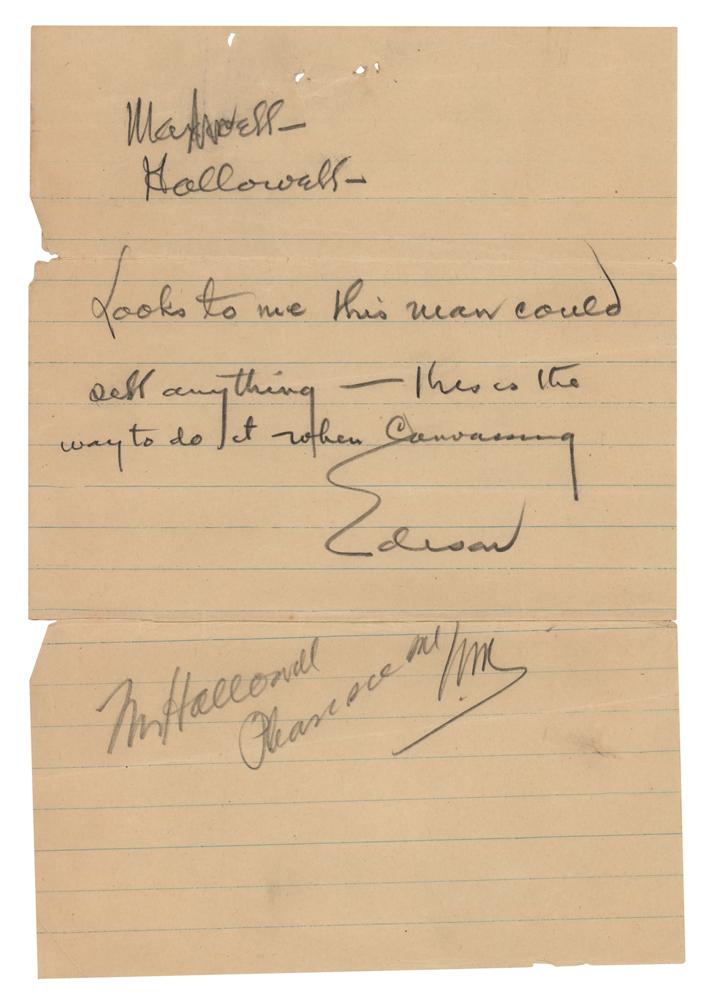 Maxwell –
Hallowell –
Looks to me this man could
sell anything — This is the
way to do it when Canvassing
Edison
Mr Hallowell
Please see me
WM